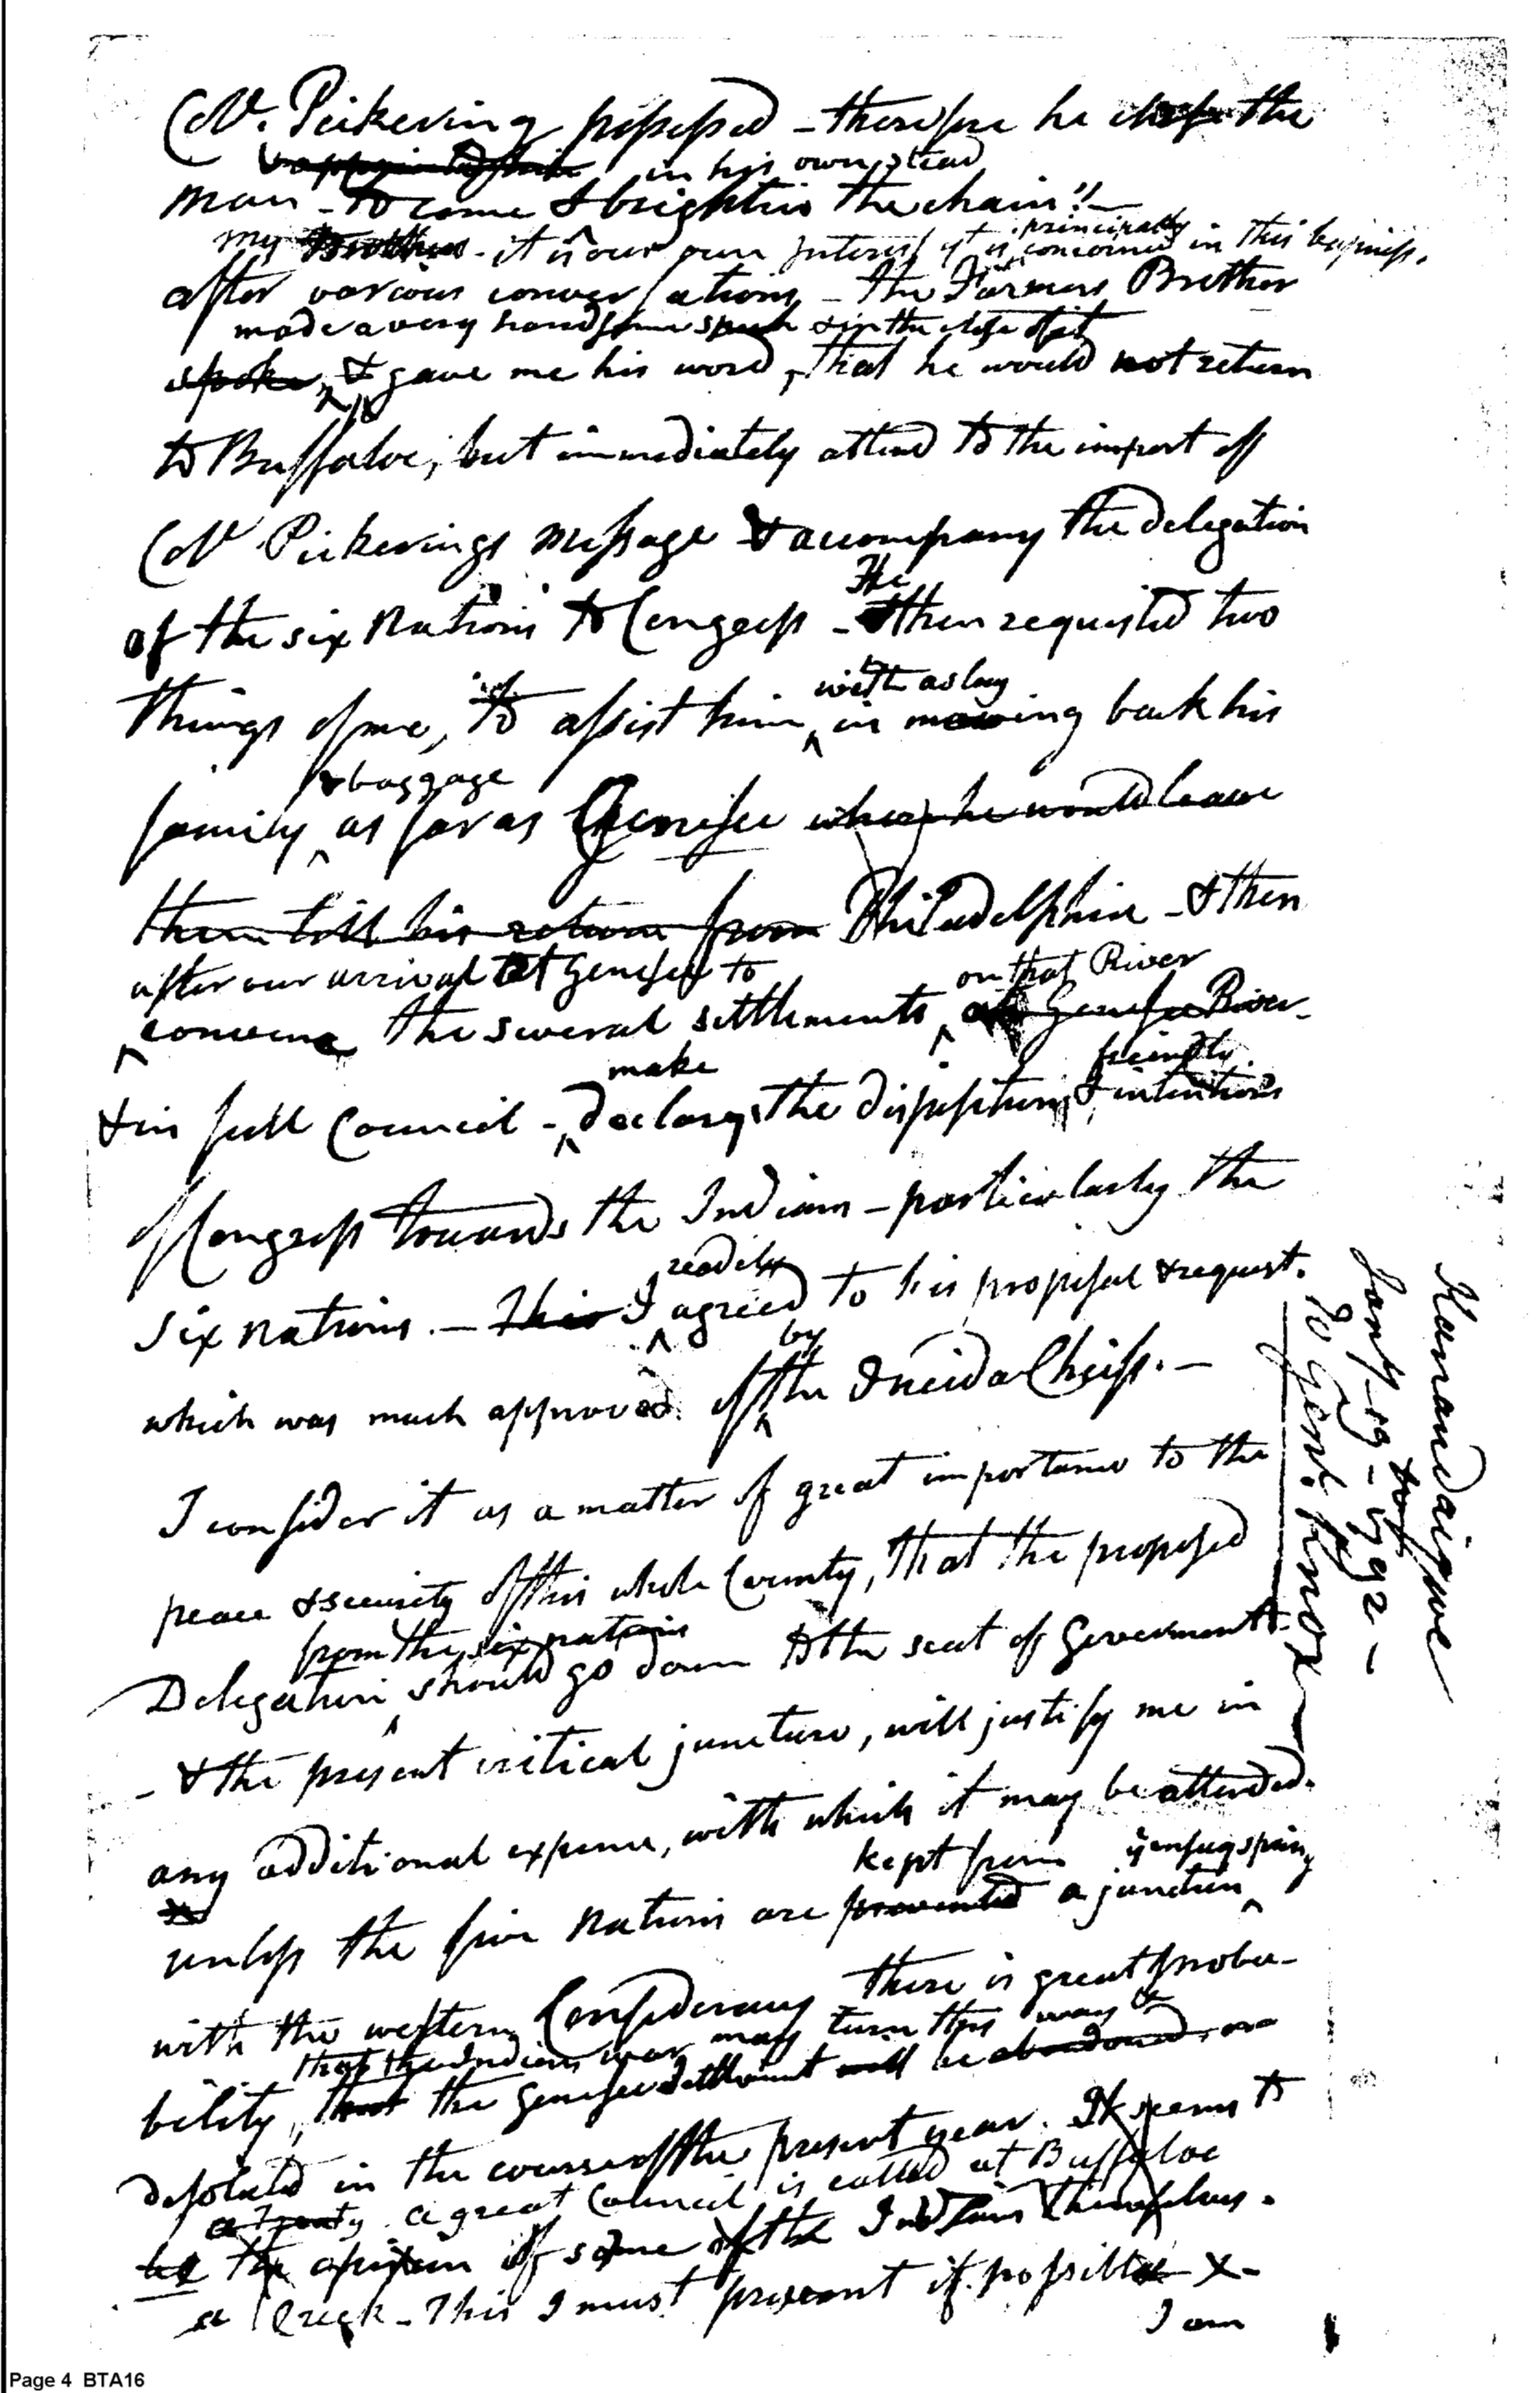 Col. Pickering possessed - therefore he chose the
in his own stead
man - to come & brighten the chain"-
my Brother - it is our own Interest yt is principally concerned in this business.
after various conversations - the Farmers Brother
made a very handsome speech & in the close of it
spoke, & gave me his word, that he would not return
to Buffaloe, but immediately attend to the import of
Col Pickerings message & accompany the delegation
of the six Nations to Congress - He then requested two
things of me, to assist him in moving back his
with a sley
family as far as Genesee where he would leave
& baggage
them till his return from Philadelphia - & then
after our arrival at Genesee to
on that River
convene the several settlements at Genesee River -
make
friendly
& in full Council - declare the dispositions & intentions
of Congress towards the Indians - particularly the
readily
Six nations. - This I agreed to his proposal & request.
by
which was much approved of the Oneida Chiefs. -
I consider it as a matter of great importance to the
peace & security of this whole County, that the proposed
from the six nations
Delegation should go down to the seat of Goverment.
- & the present critical juncture, will justify me in
any additional expence, with which it may be attended.
kept from
unless the five Nations are prevented a junction
with the western Confederacy there is great proba-
that the Indian war may turn this way &
bility, that the Genesee settlement will be abandoned, or
desolated in the course of the present year. It seems to
a Treaty a great Council is called at Buffaloe
be the opinion of some of the Indians themselves.
a Creek - This I must prevent if possible X -
I am
Kanandaigua
Jany 19 - 1792 -
To Genl. Knox
Page 4 BTA16